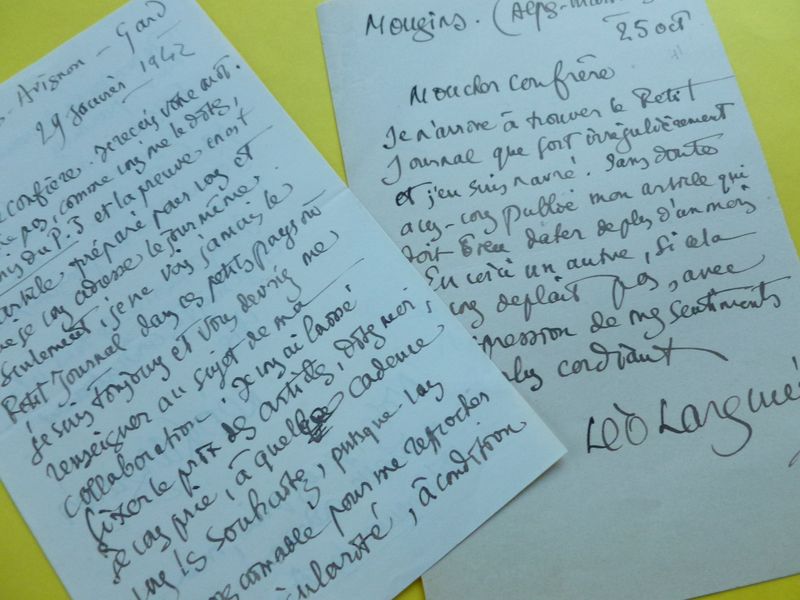 Avignon - Gard
29 Janvier 1942
confrère. Je reçois votre mot.
pas, comme vous me le dites,
du P.J et la preuve en est
article préparé pour vous et
vous adresse le jour même.
Seulement, je ne vois jamais le
Petit Journal dans ces petits pays où
je suis toujours et vous devriez me
renseigner au sujet de ma
collaboration. Je vous ai laissé
fixer le prix des articles, dites moi,
je vous prie, à quelle cadence
vous les souhaitez, puisque vous
aimable pour me reprocher
, à condition
Mougins. (Alpes-Mari
25 oct
Mon cher confrère
Je n'arrive à trouver le Petit
Journal que fort irrégulièrement
et j'en suis navré. Sans doute
avez-vous publié mon article qui
doit bien dater de plus d'un mois
En voici un autre, si cela
vous déplaît pas, avec
pression de mes sentiments
plus cordiaux
Léo Larguie